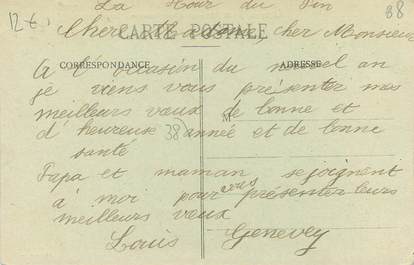 La Tour du Pin
12 €
38
Chère Madame, cher Monsieur
CARTE POSTALE
CORRESPONDANCE
ADRESSE
A l'occasion du nouvel an
je viens vous présenter mes
meilleurs vœux de bonne et
M
d'heureuse 38 année et de bonne
santé
Papa et maman se joignent
à moi pour vous présenter leurs
meilleurs vœux
Louis Genevey